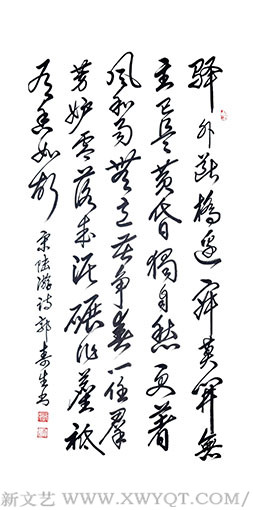 驿外断橋邊寂莫開無
主已是黄昏獨自愁更著
風和雨無意苦争春一任羣
芳妒零落成泥碾作塵祗
有香如故
宋陆游詩郭生书
新文艺 / WWW.XWYQT.COM/